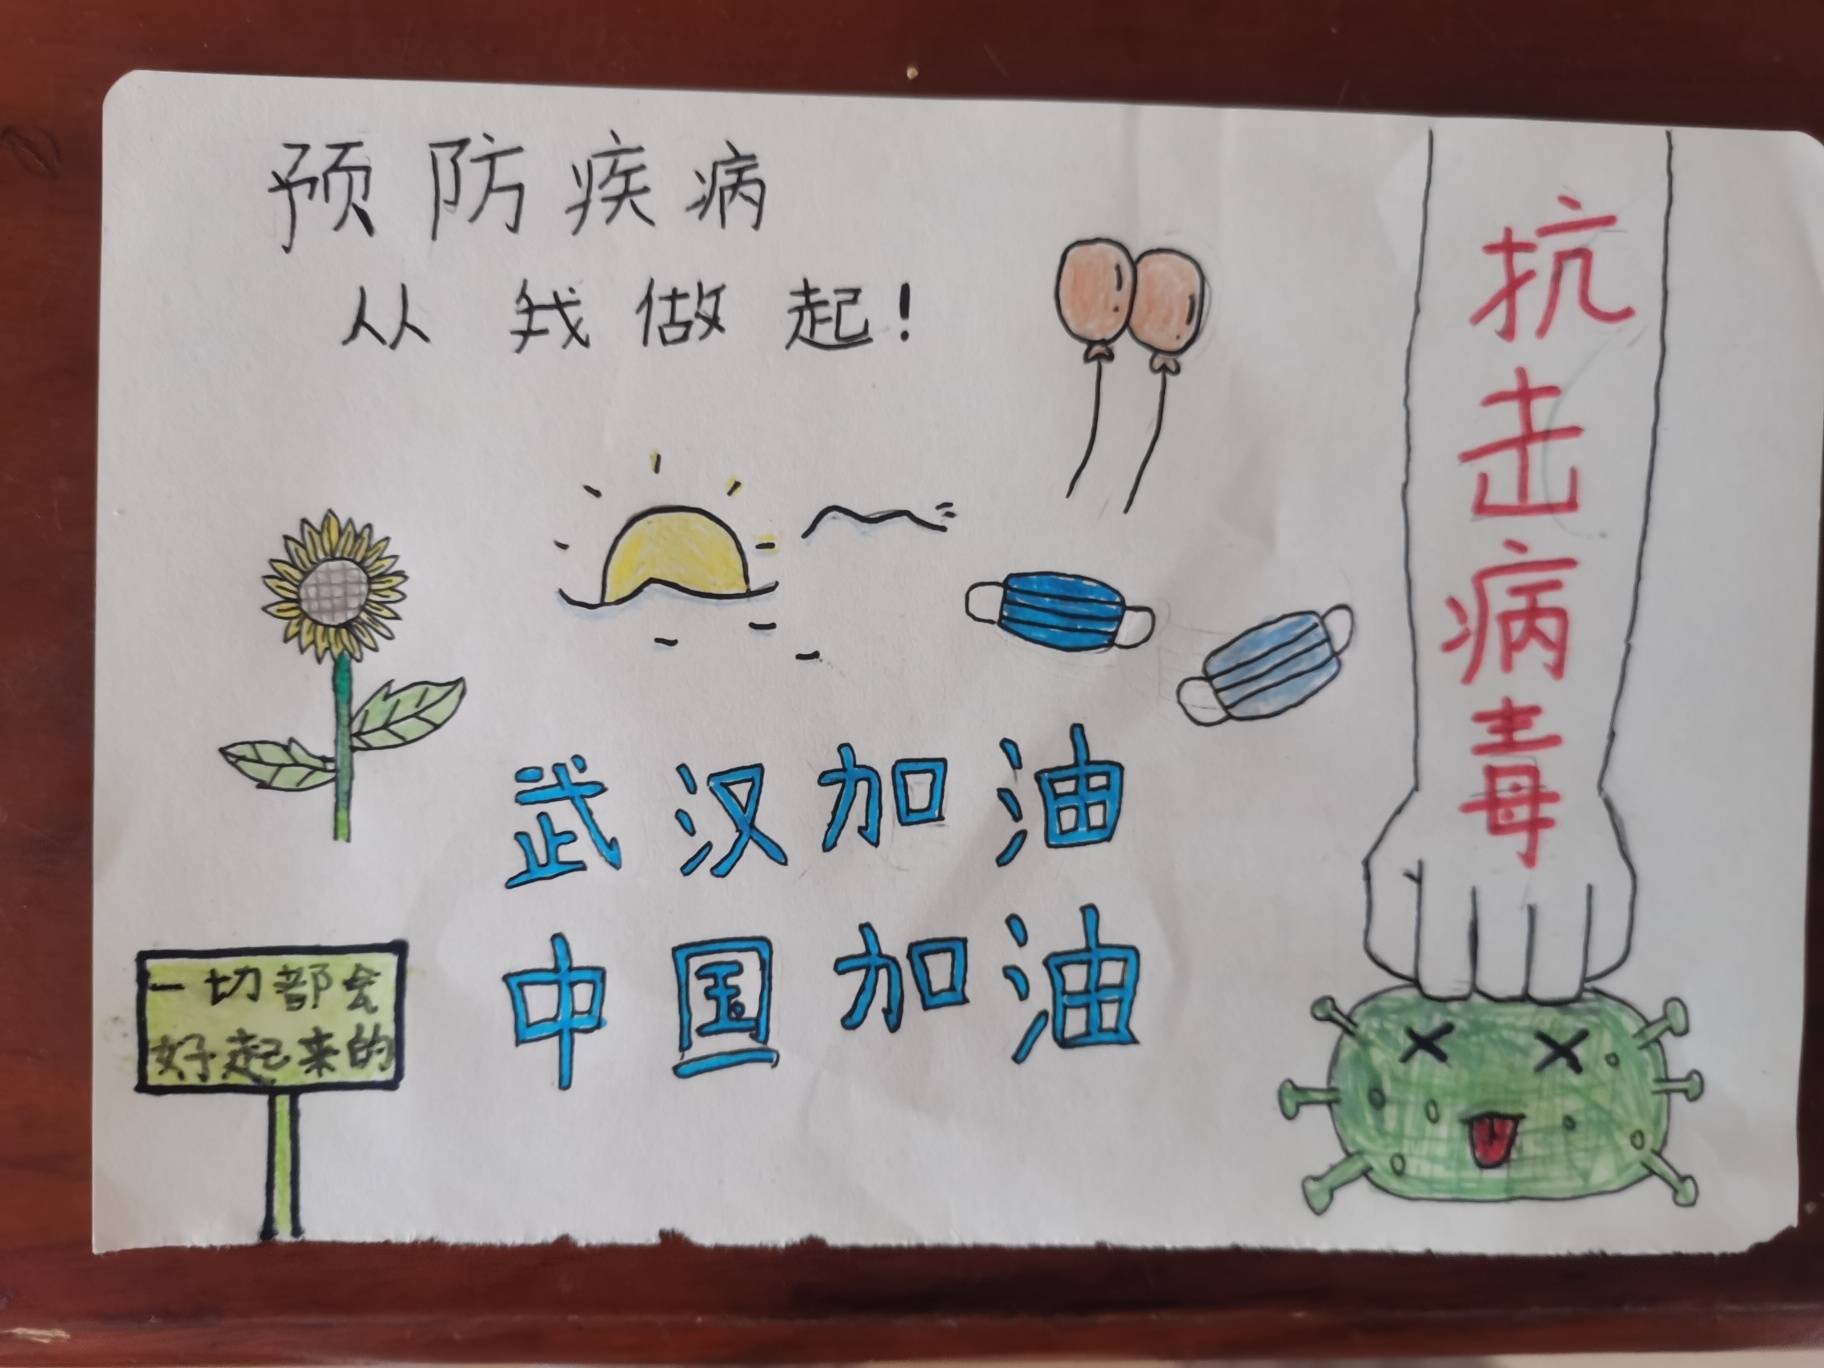 预防疾病
从我做起！
抗击病毒
武汉加油
中国加油
一切都会
好起来的